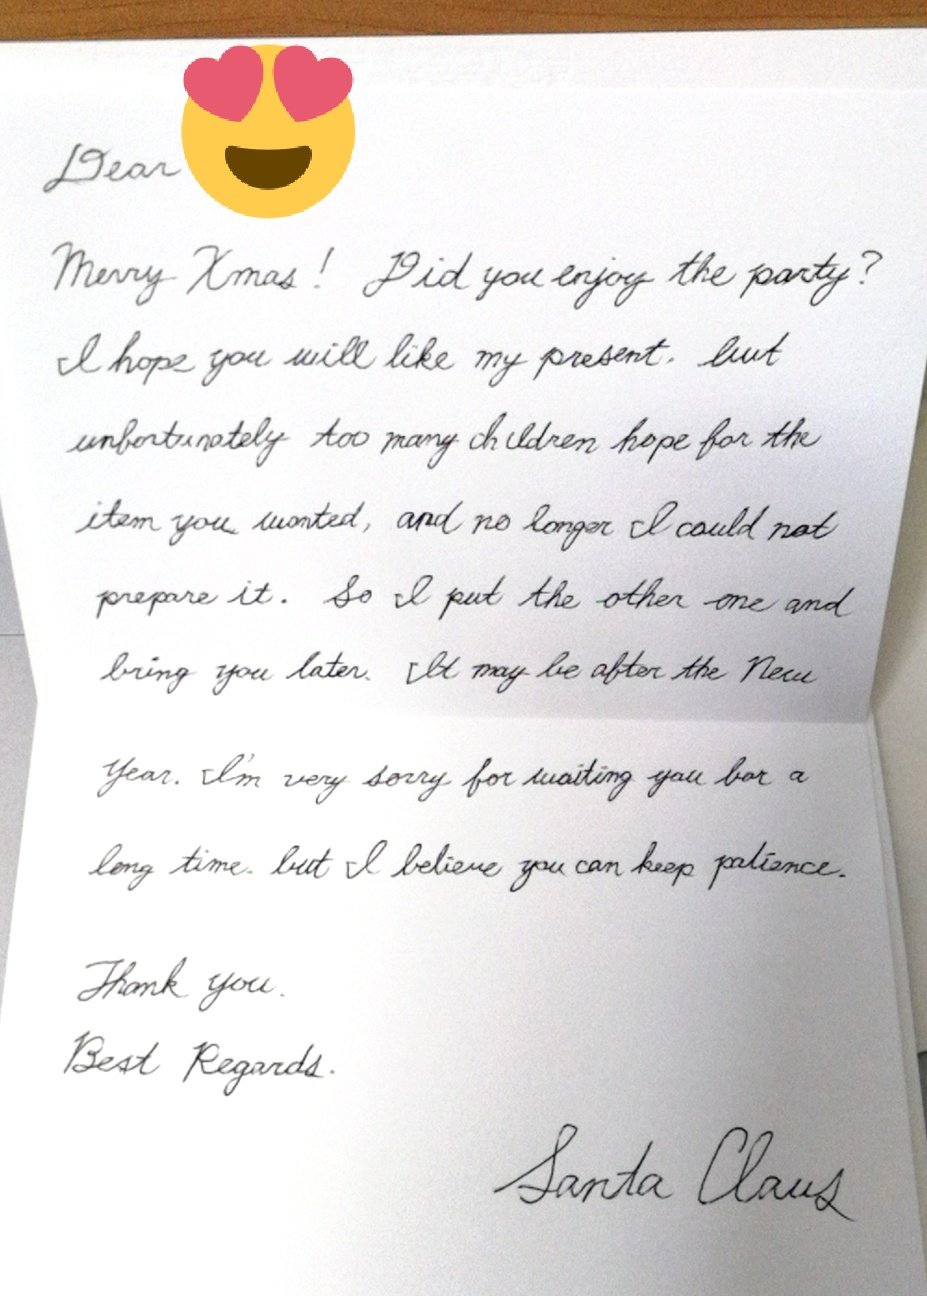 Dear
Merry Xmas! Did you enjoy the party?
I hope you will like my present. but
unfortunately too many children hope for the
item you wanted, and no longer I could not
prepare it. So I put the other one and
bring you later. It may be after the New
Year. I'm very sorry for waiting you for a
long time. but I believe you can keep patience.
Thank you.
Best Regards.
Santa Claus